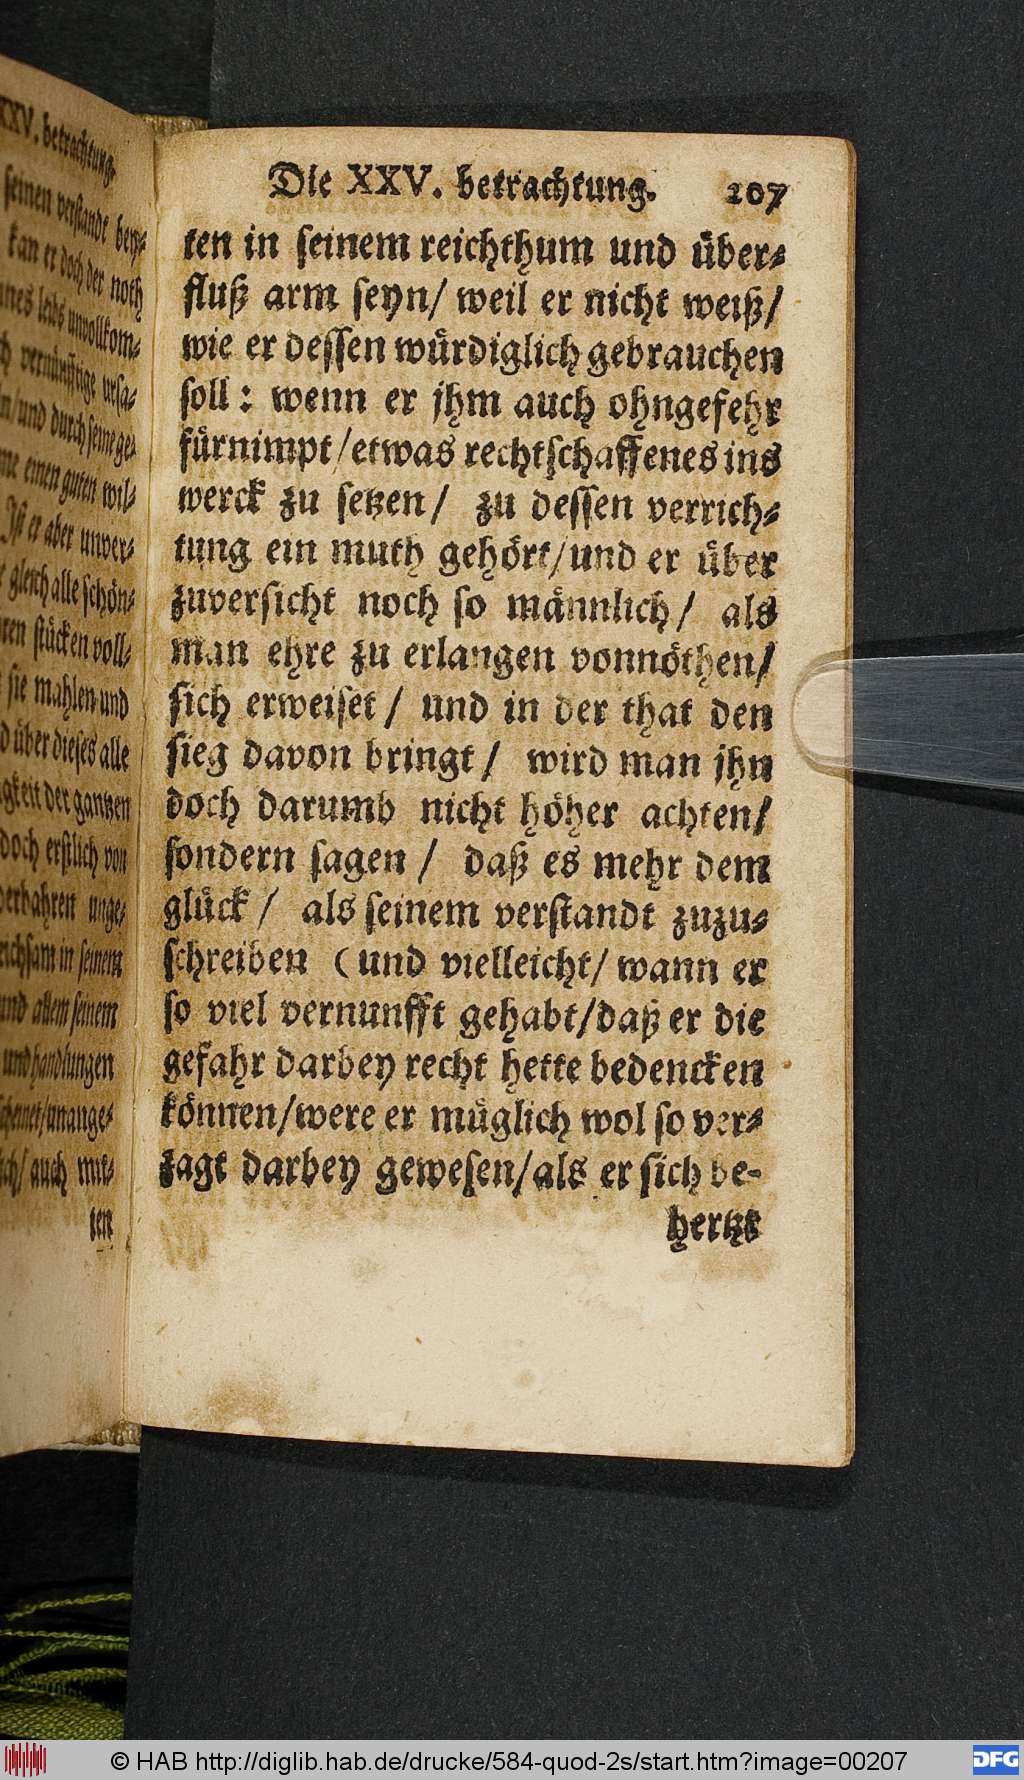 XXV. betrachtung.
seinen verstandt bey-
kan er doch der noth
unvollkom-
vernünfftige ursa-
und durch seine ge-
einen guten wil-
Ist er aber unver-
gleich alle schön-
stücken voll-
sie mahlen und
über dieses alle
der gantzen
doch erstlich von
unge-
in seinem
und allem seinem
und handlungen
unange-
auch mit-
ten
Die XXV. betrachtung. 207
ten in seinem reichthum und über-
fluß arm seyn/ weil er nicht weiß/
wie er dessen würdiglich gebrauchen
soll: wenn er jhm auch ohngefehr
fürnimpt/etwas rechtschaffenes ins
werck zu setzen/ zu dessen verrich-
tung ein muth gehört/und er über
zuversicht noch so männlich/ als
man ehre zu erlangen vonnöthen/
sich erweiset/ und in der that den
sieg davon bringt/ wird man jhn
doch darumb nicht höher achten/
sondern sagen/ daß es mehr dem
glück/ als seinem verstandt zuzu-
schreiben (und vielleicht/ wann er
so viel vernunfft gehabt/daß er die
gefahr darbey recht hette bedencken
können/were er müglich wol so ver-
zagt darbey gewesen/als er sich be-
hertzt
© HAB http://diglib.hab.de/drucke/584-quod-2s/start.htm?image=00207
DFG